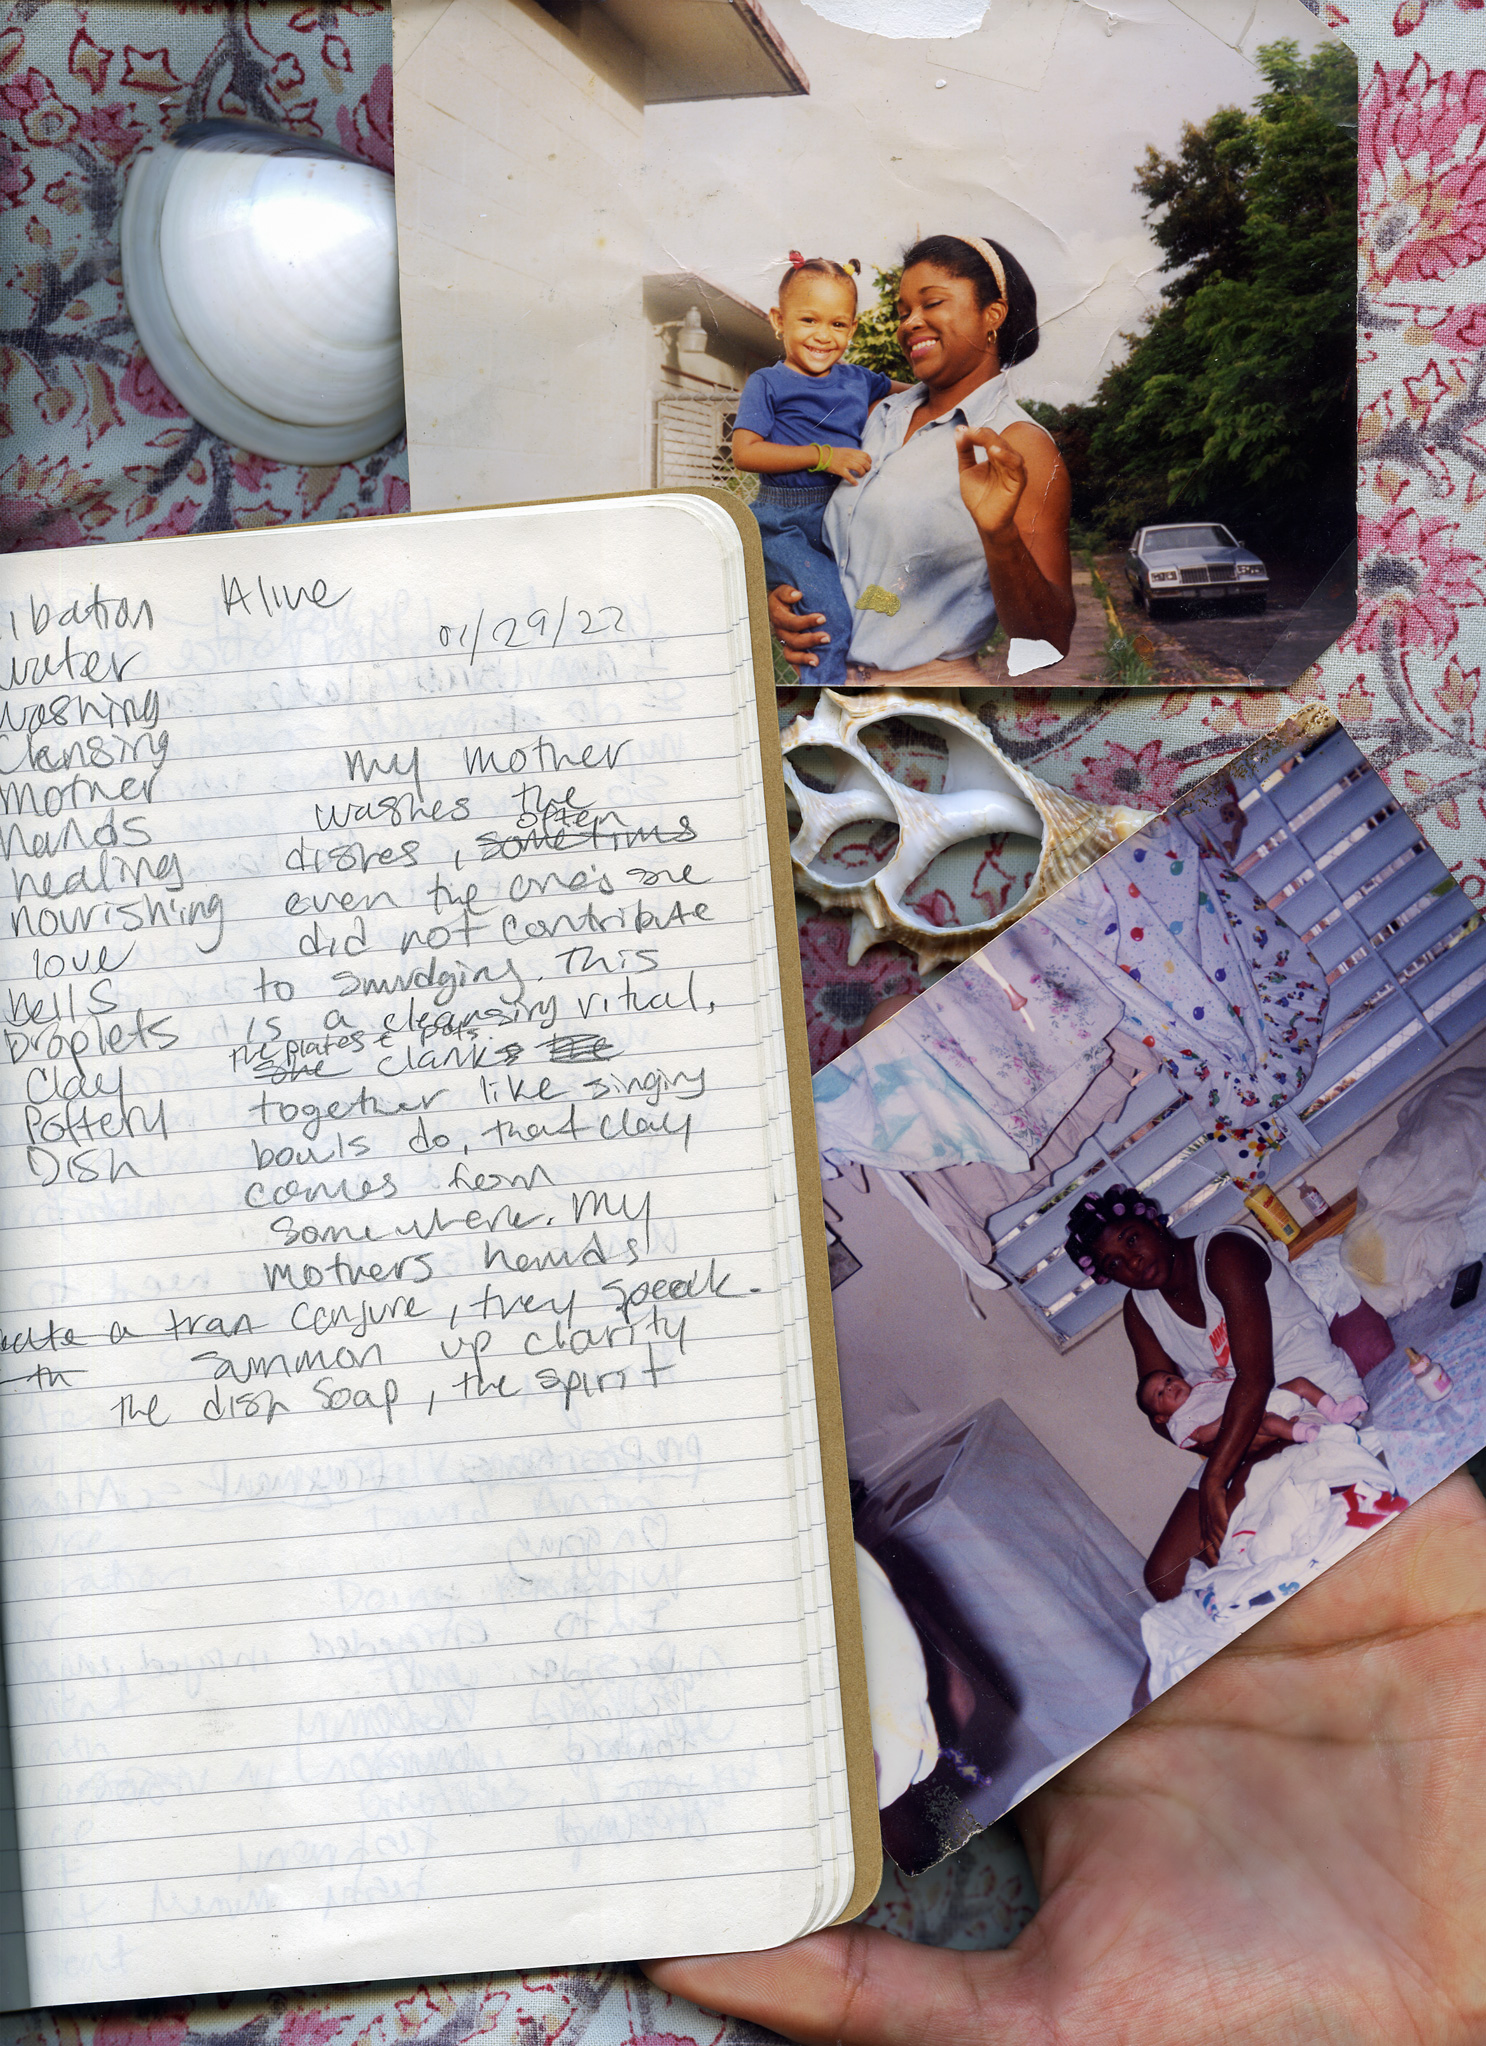 ibation Alive
01/29/22
water
washing
Clensing
mother
hands
healing
nourishing
love
bells
Droplets
Clay
Pottery
Dish
my mother
washes the
often
dishes, sometimes
even the one's she
did not contribute
to smudging. This
is a cleansing ritual,
the plates & pots
she clanks the
together like singing
bowls do, that clay
comes from
somewhere. My
mothers hands
a tran conjure, they speak.
summon up clarity
the dish soap, the spirit